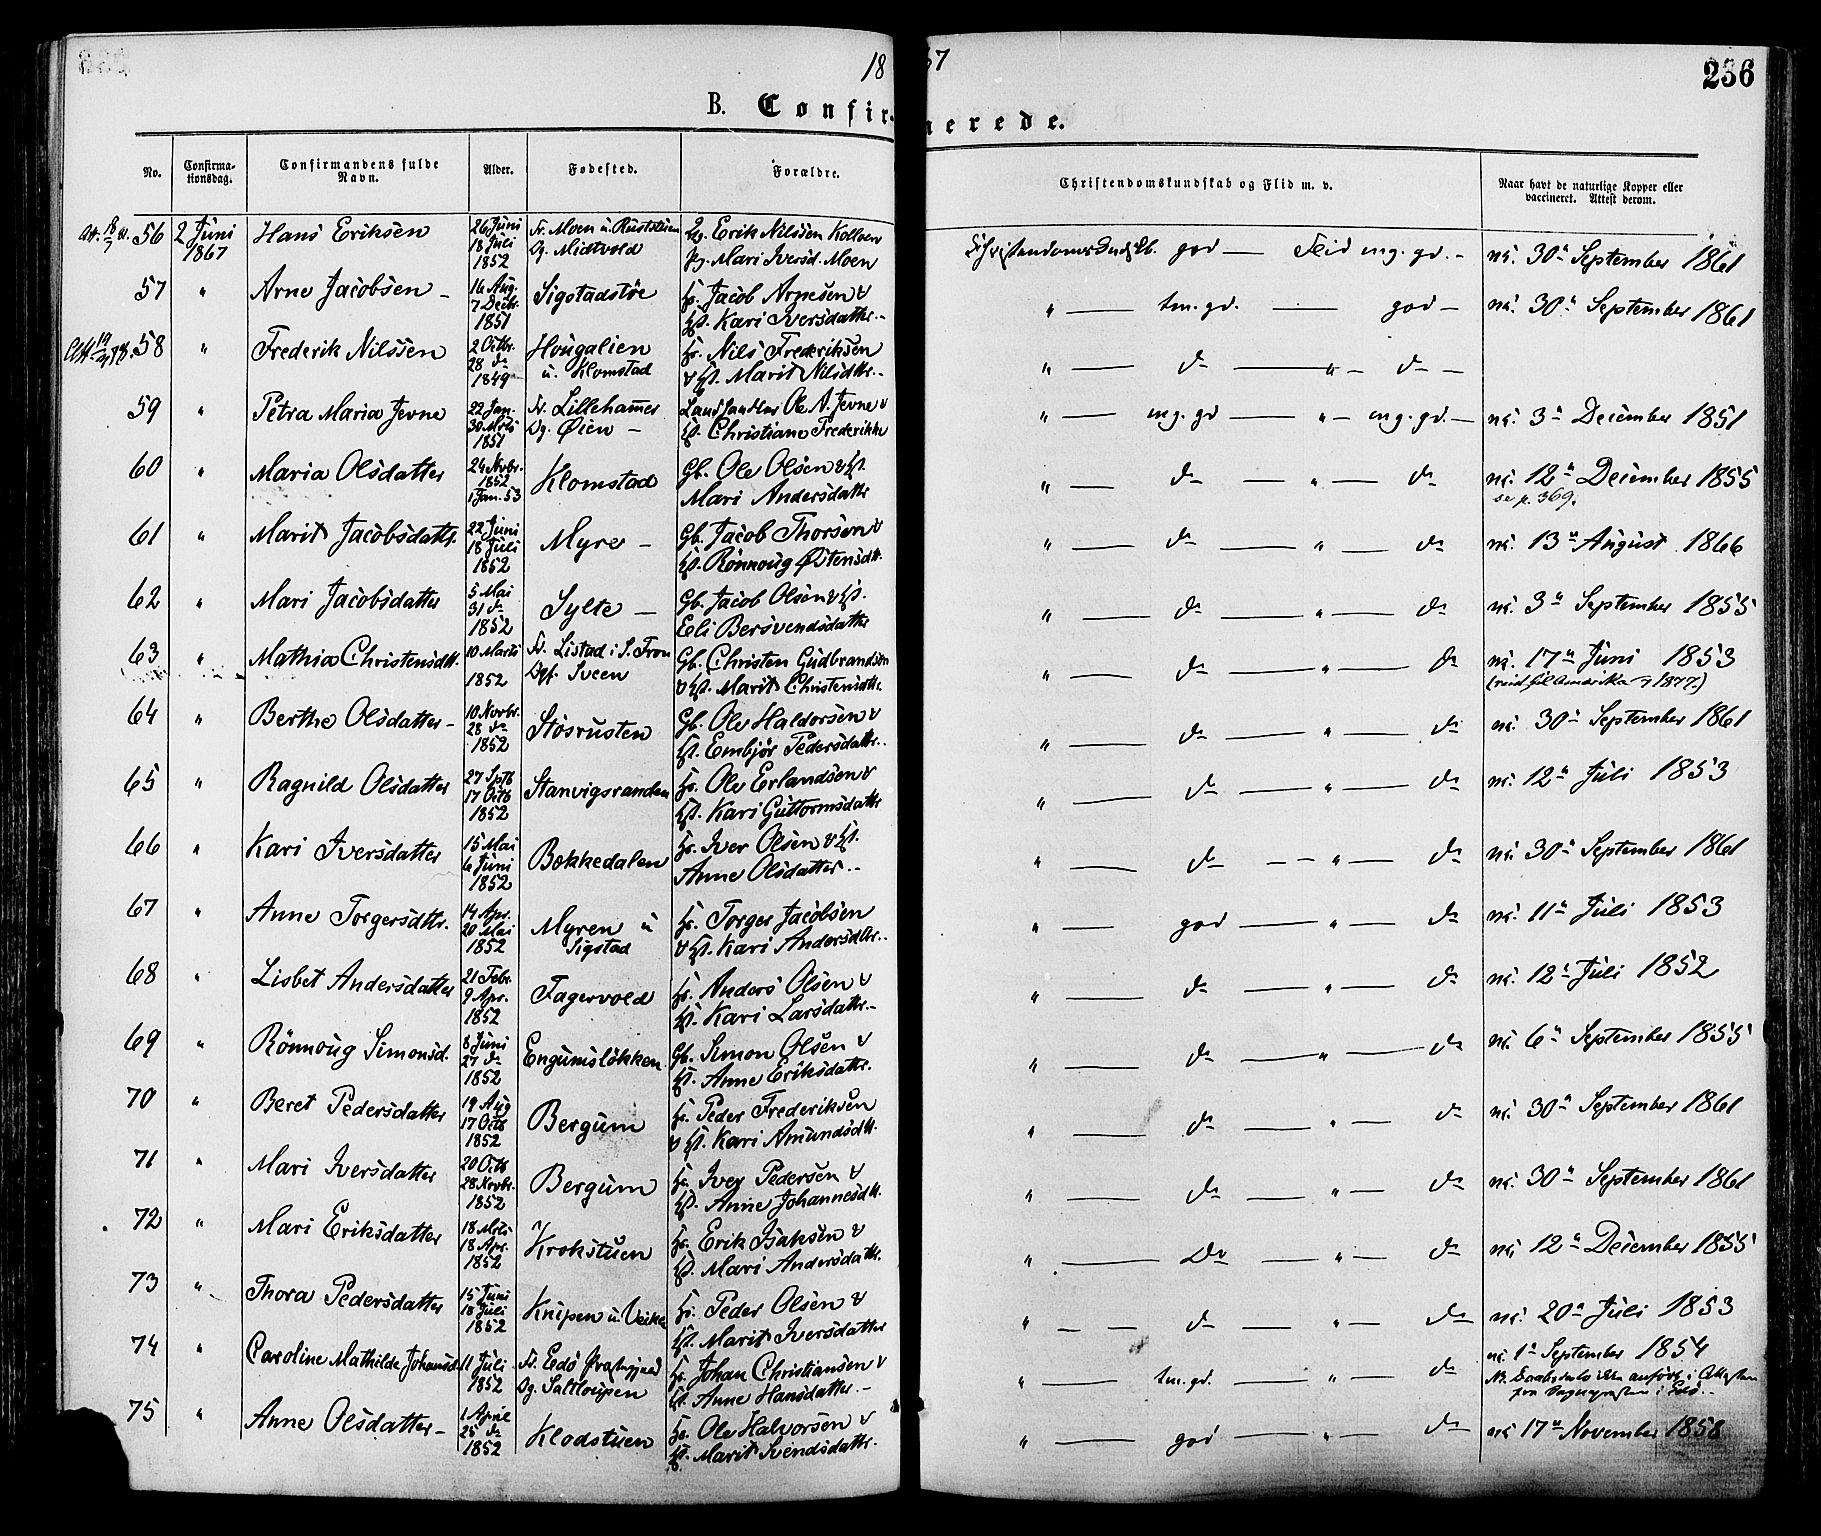 18 67
236
B. Confirmerede.
No. Confirma-tionsdag. Confirmandens fulde Navn. Alder. Fødested. Forældre. Christendomskundskab og Flid m. v. Naar havt de naturlige Kopper eller vaccineret. Attest derom.
56 2 Juni 1867 Hans Eriksen 26 Juni 18 Juli 1852 Fr. Moen u. Ruststuen Dg. Midtvold Erik Nilssen Kollven Pg. Mari Iversd. Moen Christendomskundsk. god — Flid mg. gd. - na. 30te September 1861
57 " Arne Jacobsen - 16 Aug. 7 Decbr. 1851 Sigstadstøe Hr. Jacob Arnesen & Hst. Kari Iversdatter.- " — tm. gd. — god — na. 30te September 1861
58 " Frederik Nilssen 2 Octbr. 28 do 1849 Hougalien u. Klomstad Hr. Nils Frederiksen & Hst. Marit Nilsdttr.- " — do — " — do —
59 " Petra Maria Jevne 22 Jan. 30 Mrts 1851 Fr. Lillehamer Dg. Øien - Landhandler Ole A. Jevne & Hst. Christiane Frederikke " — mg. gd — " — mg. gd. — na. 3te December 1851
60 " Maria Olsdatter 24 Novbr. 1852 1 Jan. 53 Klomstad Gb. Ole Olsen & Hst. Mari Andersdatter " — do — " — do na. 12te December 1855 se p. 369.
61 " Marit Jacobsdattr. 22 Juni 18 Juli 1852 Myre - Gb. Jacob Thorsen & Hst. Rönnoug Østensdtt. " — do — " — do na. 13te August 1866
62 " Mari Jacobsdatter 5 Mai 31 do 1852 Sylte - Gb. Jacob Olsen & Hst. Eli Bersvendsdatter " — do — " — do na. 3te September 1855
63 " Mathia Christensdtt. 10 Marts 1852 Fr. Listad i S. Fron Dgf. Sveen Gb. Christen Gudbrandsen & Hst. Marit Christensdtr. " — do — " — do na. 17te Juni 1853 (reist til Amerika 1877.)
64 " Berthe Olsdatter - 10 Novbr. 28 do 1852 Stosrusten Gb. Ole Haldorsen & Hst. Embjør Pedersdattr. " — do — " — do na. 30te September 1861
65 " Ragnild Olsdatter 27 Sptb 17 Octb 1852 Stanvigsranden Hr. Ole Erlandsen & Hst. Kari Guttormsdatter " — do — " — do na. 12te Juli 1853
66 " Kari Iversdatter 15 Mai 6 Juni 1852 Bokkedalen Hr. Iver Olsen & Hst. Anne Olsdatter.- " — do — " — do na. 30te September 1861
67 " Anne Torgersdttr. 14 Apr. 20 Mai 1852 Myren u Sigstad Hr. Torger Jacobsen & Hst. Kari Andersdttr.. " — god — " — do na. 11te Juli 1853
68 " Lisbet Andersdatter 21 Febr. 9 Apr. 1852 Fagervold Hr. Anders Olsen & Hst. Kari Larsdatter.- " — do — " — do na. 12te Juli 1852
69 " Rönnoug Simonsd. 8 Juni 27 do 1852 Engumsløkken Gb. Simon Olsen & Hst. Anne Eriksdattr. " — do — " — do na. 6te September 1855
70 " Beret Pedersdatter 19 Aug 17 Octb 1852 Bergum Hr. Peder Frederiksen & Hst. Kari Amundsdtt. " — do — " — do na. 30te September 1861
71 " Mari Iversdatter 20 Octb 28 Novbr. 1852 Bergum Hr. Iver Pedersen & Hst. Anne Johannesdtt. " — do — " — do na. 30te September 1861
72 " Mari Eriksdatter 18 Mrts 18 Apr. 1852 Krokstuen Hr. Erik Isaksen & Hst. Mari Andersdattr. " — Do — " — do na. 12te December 1855
73 " Thora Pedersdatter 15 Juni 18 Juli 1852 Knipen u. Veikle Hr. Peder Olsen & Hst. Marit Iversdatter " — do — " — do na. 20te Juli 1853
74 " Caroline Mathilde Johansd. 11 Juli 1852 Fr. Edø Præstegjeld Dg. Saltloupen Hr. Johan Christiansen & Hst. Anne Hansdatter.- " — tm. gd. — " — do na. 1te September 1854 NB. Daabsdato ikke anført i Attesten fra Sognepresten i Edø.
75 " Anne Olsdatter - 1 April 25 do 1852 Klodstuen Hr. Ole Halvorsen & Hst. Marit Svendsdattr. " — god — " — do na 17te November 1858